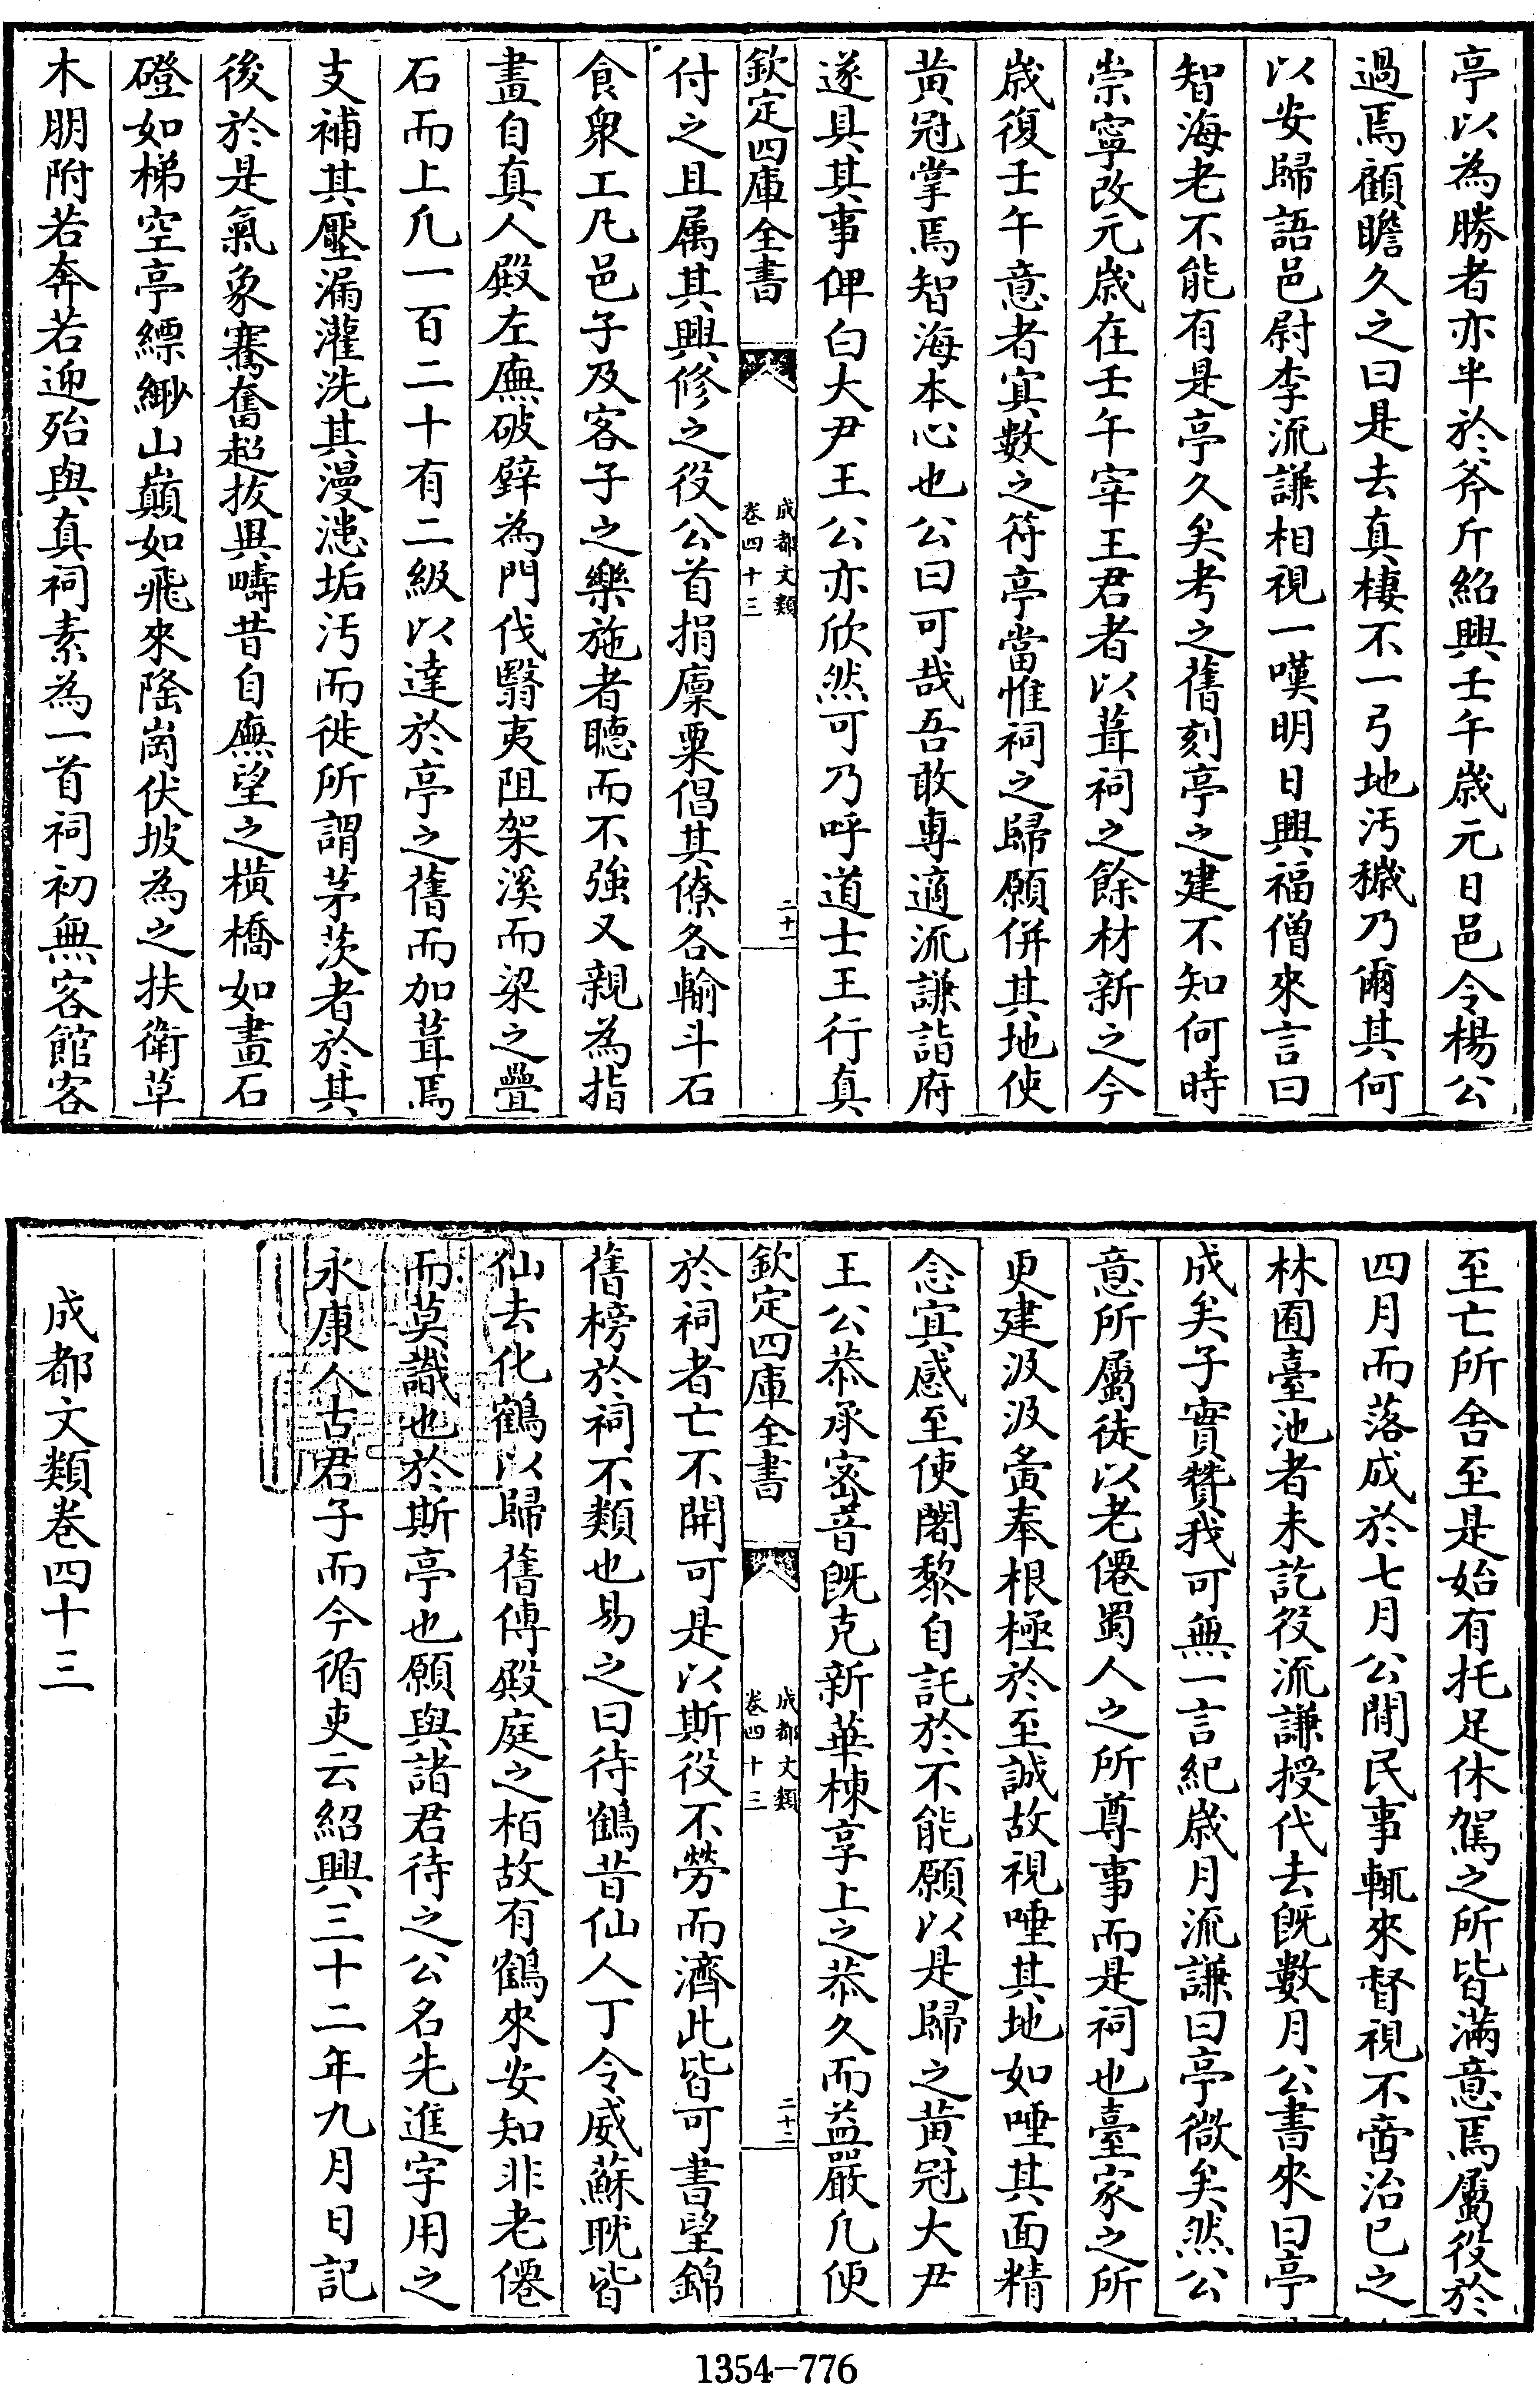 亭以為勝者亦半於斧斤紹興壬午歲元日邑令楊公
過焉顧瞻久之曰是去真棲不一弓地汚穢乃爾其何
以安歸語邑尉李流謙相視一嘆明日興福僧來言曰
智海老不能有是亭久矣考之舊刻亭之建不知何時
崇寧改元歲在壬午宰王君者以葺祠之餘材新之今
歲復壬午意者寘數之符亭當惟祠之歸願併其地使
黄冠掌焉智海本心也公曰可哉吾敢專適流謙詣府
遂具其事俾白大尹王公亦欣然可乃呼道士王行真
欽定四庫全書
成都文類
卷四十三
二十一
付之且属其興修之役公首捐廩粟倡其僚各輸斗石
食衆工凡邑子及客子之樂施者聽而不強又親為指
畫自真人殿左廡破壁為門伐翳夷阻架溪而梁之疊
石而上凡一百二十有二級以達於亭之舊而加葺焉
支補其壓漏灌洗其漫漶垢汚而徙所謂茅茨者於其
後於是氣象騫奮超拔異疇昔自廡望之横橋如畫石
磴如梯空亭縹緲山巔如飛來隆崗伏坡為之扶衛草
木朋附若奔若迎殆與真祠素為一首祠初無客館客
至亡所舍至是始有托足休駕之所皆滿意焉屬役於
四月而落成於七月公閒民事輒來督視不啻治已之
林囿臺池者未訖役流謙授代去既數月公書來曰亭
成矣子實贊我可無一言紀歲月流謙曰亭微矣然公
意所屬徒以老僊蜀人之所尊事而是祠也臺家之所
更建汲汲䖍奉根極於至誠故視唾其地如唾其面精
念寘感至使闍黎自託於不能願以是歸之黄冠大尹
王公恭承宻音既克新華棟享上之恭久而益嚴凡便
欽定四庫全書
成都文類
卷四十三
二十二
於祠者亡不開可是以斯役不勞而濟此皆可書望錦
舊榜於祠不類也易之曰待鶴昔仙人丁令威蘇耽皆
仙去化鶴以歸舊傳殿庭之栢故有鶴來安知非老僊
而莫識也於斯亭也願與諸君待之公名先進字用之
永康人古君子而今循吏云紹興三十二年九月日記
成都文類卷四十三
1354-776